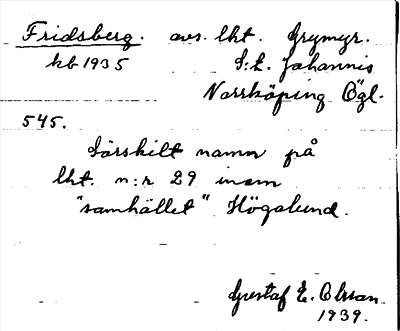 Fridsberg. avs. lht. Grymyr.
kb 1935 S:t Johannis
Norrköping Ögl.
545.
Särskilt namn på
lht. n:r 29 inom
"samhället" Högalund.
Gustaf E. Olsson.
1939.